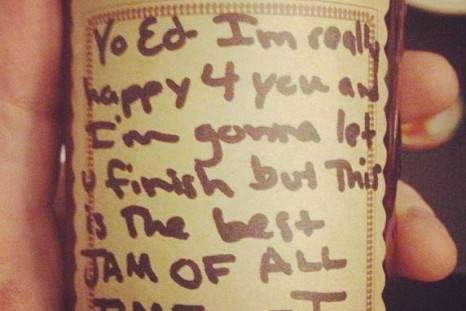 Yo Ed I'm really
happy 4 you an
I'm gonna let
finish but This
is The best
JAM OF ALL
TIME